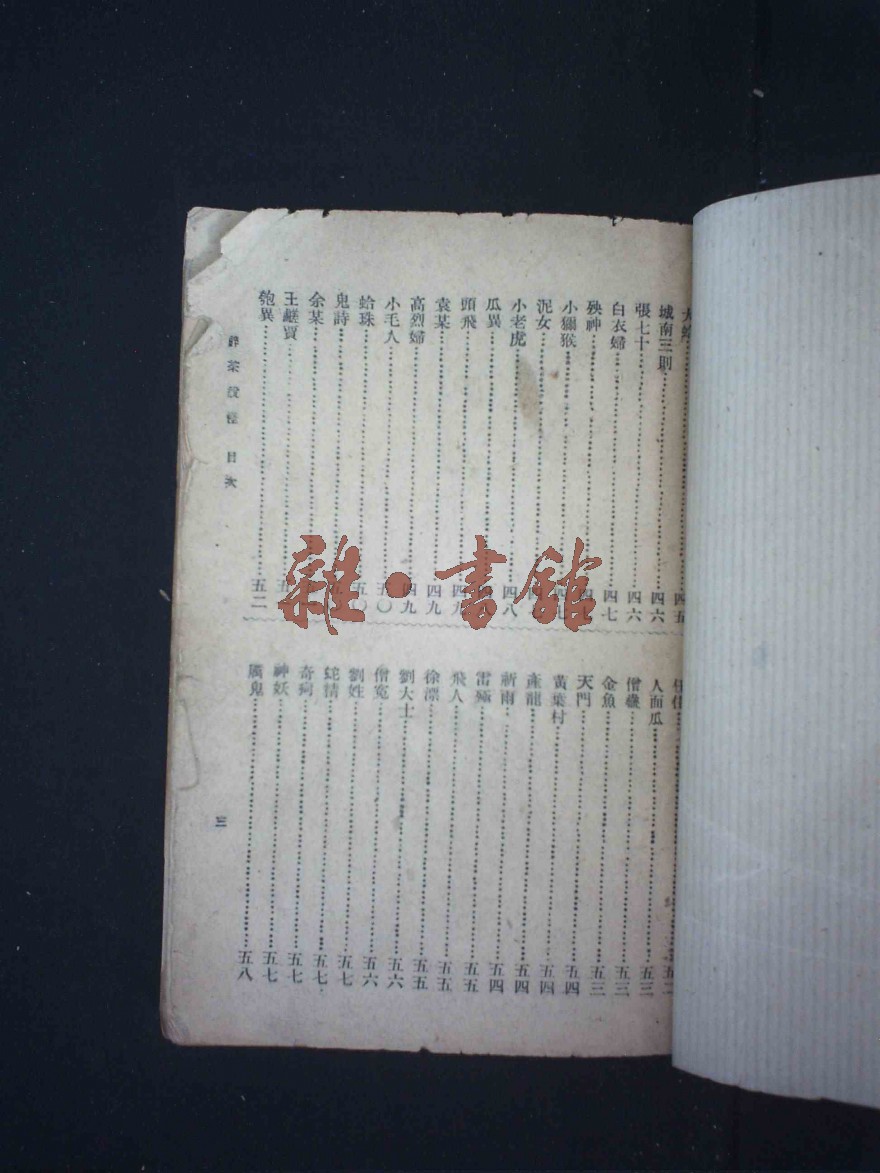 城南三則四六
張七十四六
白衣婦四七
殃神四七
小獼猴四七
泥女四
小老虎四八
瓜異四八
頭飛四九
袁某四九
高烈婦四九
小毛人五〇
蛤珠五〇
鬼詩五
余某
王鬍賈五
匏異五二
人面瓜五三
僧 五三
金魚五三
天門五四
黃葉村五四
產龍五四
祈雨五四
雷殛五五
飛人五五
徐漂五五
劉大士五六
僧冤五六
劉姓五七
蛇精五七
奇病五七
神妖五七
厲鬼五八
醉茶說怪 目次
三
雜·書館